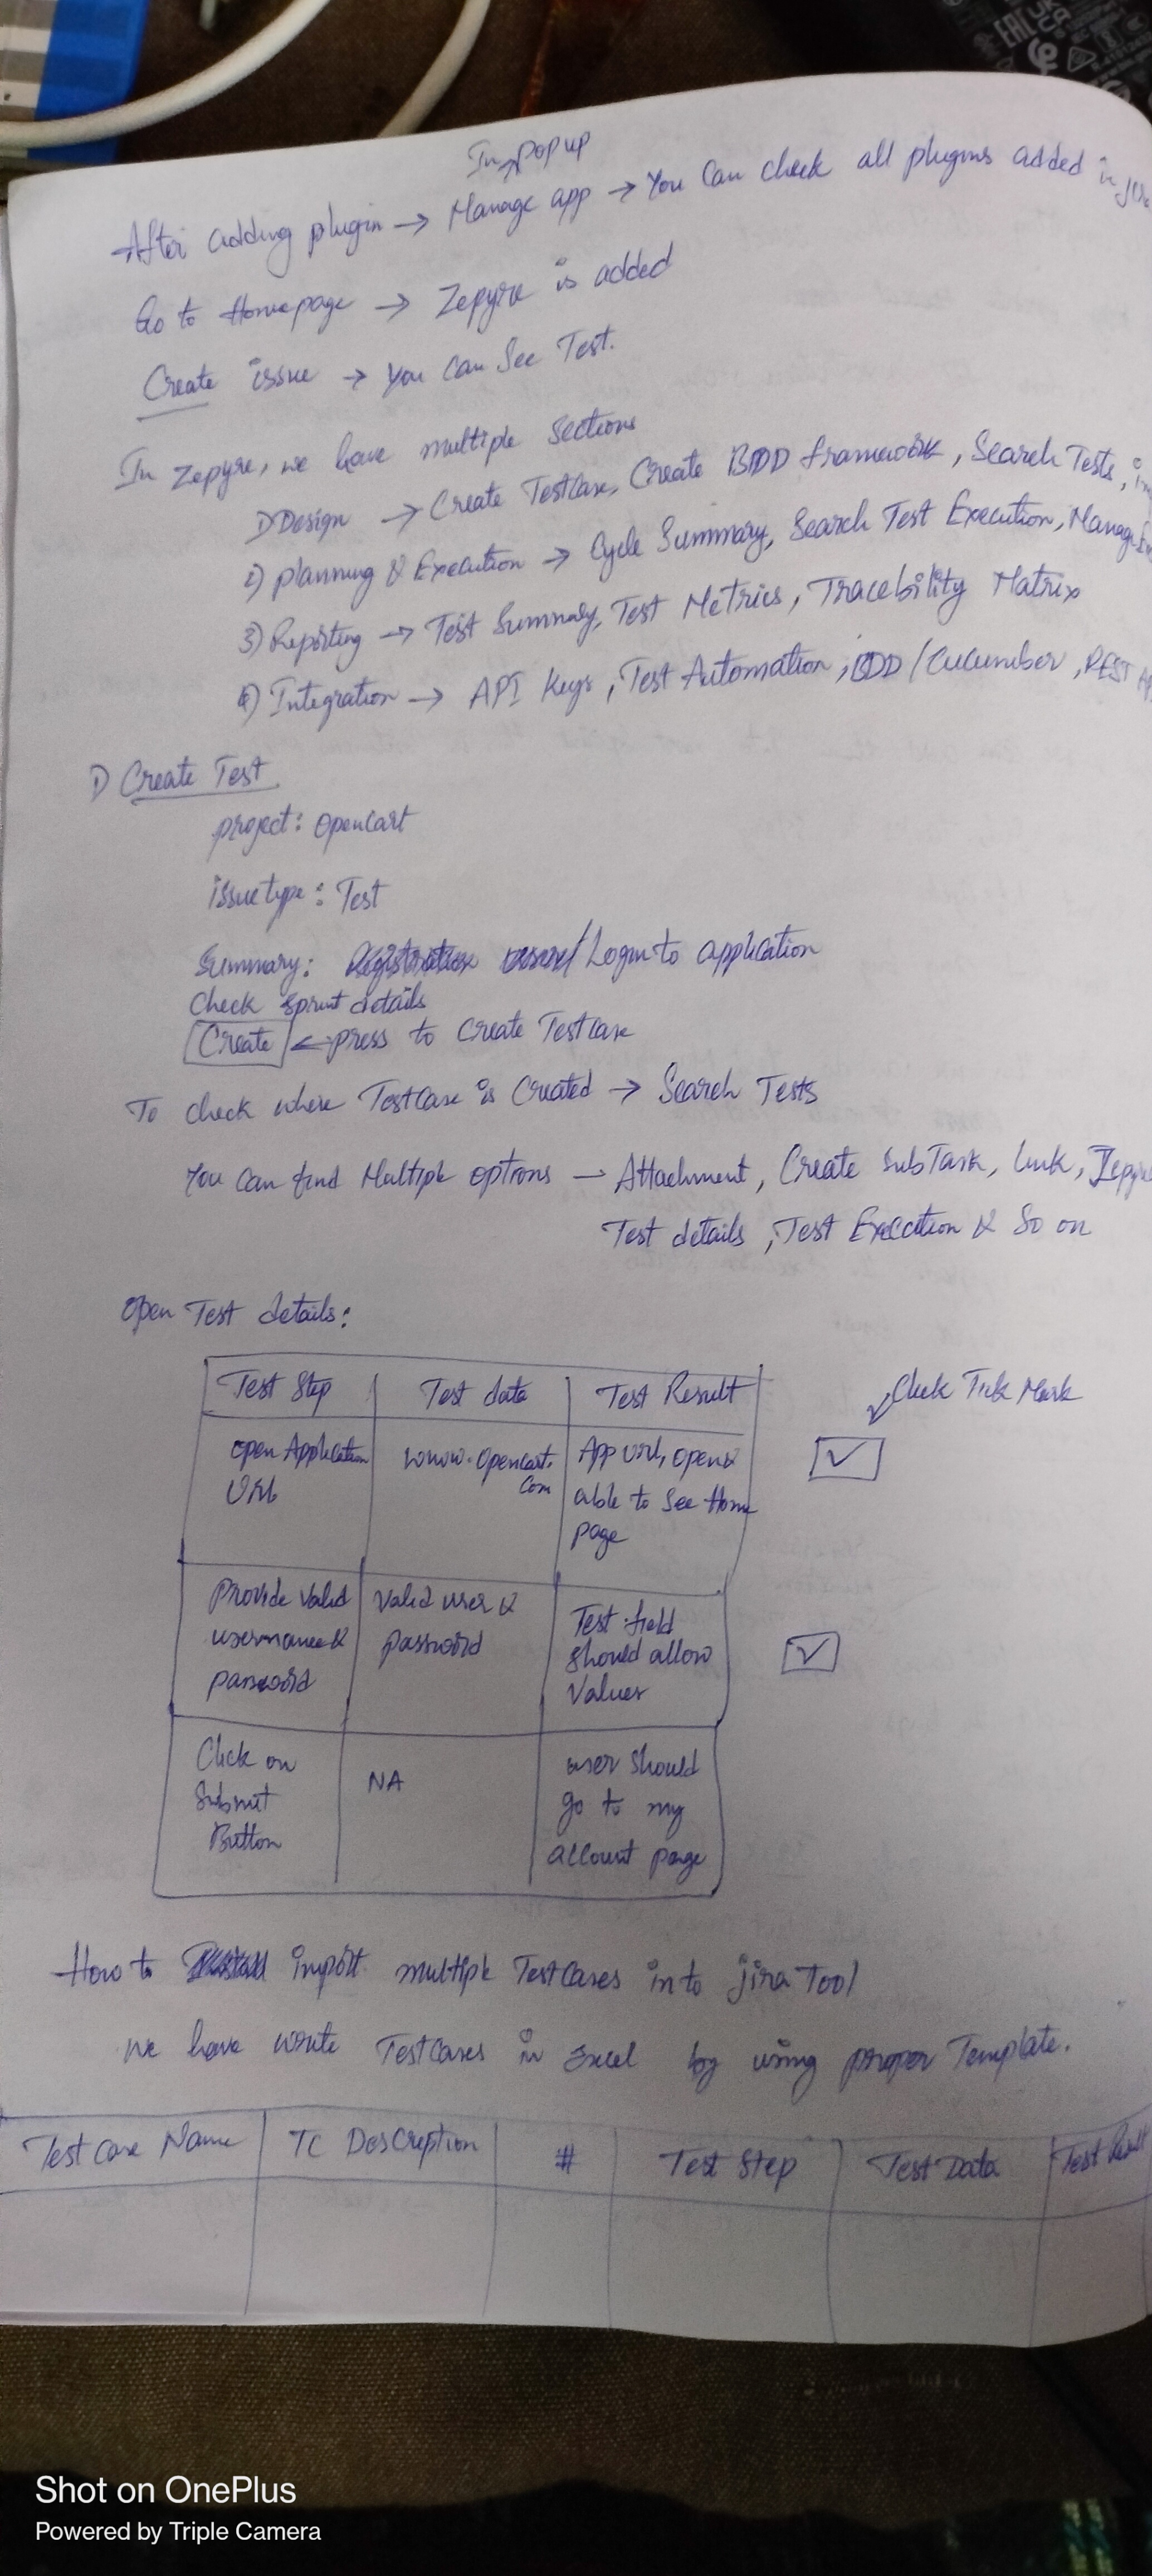 In popup
After adding plugin → Manage app → You can check all plugins added in jira
Go to Homepage → Zepyre is added
Create issue → You can See Test.
In Zepyre, we have multiple sections
1) Design → Create Testcase, Create BDD framework, Search Tests,
2) planning & Execution → Cycle Summary, Search Test Execution, Manage
3) Reporting → Test Summary, Test Metrics, Tracebility Matrix
4) Integration → API Keys, Test Automation, BDD/Cucumber, REST
1) Create Test
project: Opencart
issue type: Test
Summary: Login to application
Check sprint details
Create ← press to Create Testcase
To check where Testcase is Created → Search Tests
You can find Multiple options → Attachment, Create SubTask, link, Zepyre
Test details, Test Execution & So on
Open Test details:
Test Step Test data Test Result
Click Tick Mark
open Application www.Opencart. App Url, open &
Url com able to See Home
page
Provide Valid Valid user & Test field
username & password should allow
password Values
Click on NA user should
Submit go to my
Button account page
How to import multiple Testcases in to jira Tool
we have write Testcases in Excel by using proper Template.
Test case Name TC Descreption # Test Step Test Data Test Result
EAC
UK
CA
Shot on OnePlus
Powered by Triple Camera